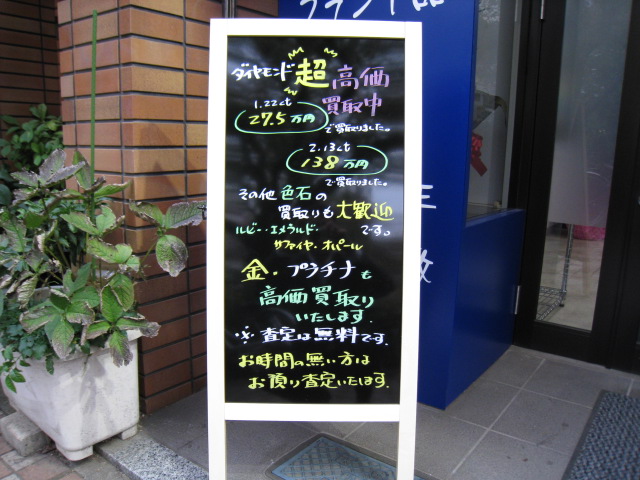 ブランド品
ダイヤモンド 超 高価
買取中
1.22ct
27.5万円
で買取りました。
2.13ct
138万円
で買取りました。
その他 色石の
買取りも 大歓迎
ルビー・エメラルド・ です。
サファイヤ・オパール
金・プラチナも
高価買取り
いたします。
※査定は無料です。
お時間の無い方は
お預り査定いたします。